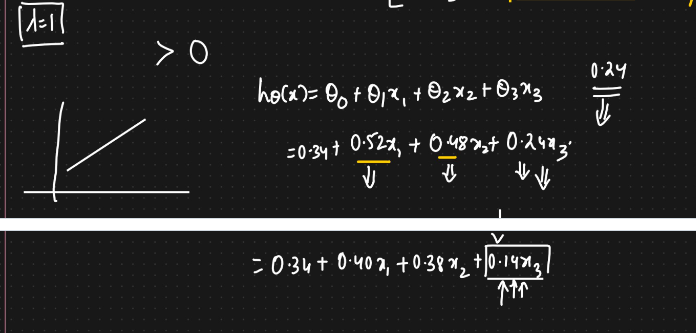 λ=1
> 0
hθ(x) = θ0 + θ1x1 + θ2x2 + θ3x3
0.24
= 0.34 + 0.52x1 + 0.48x2 + 0.24x3
= 0.34 + 0.40x1 + 0.38x2 + 0.14x3